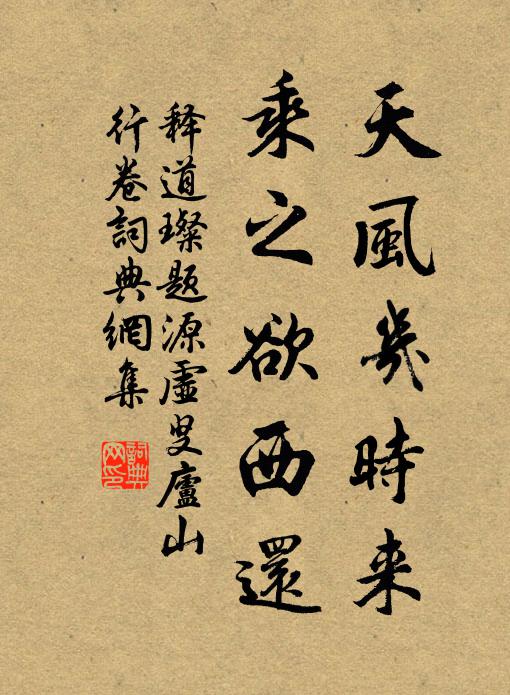 天風幾時来
乘之欲西還
释道璨题源虛叟廬山
行卷詞典網集
詞典
网印